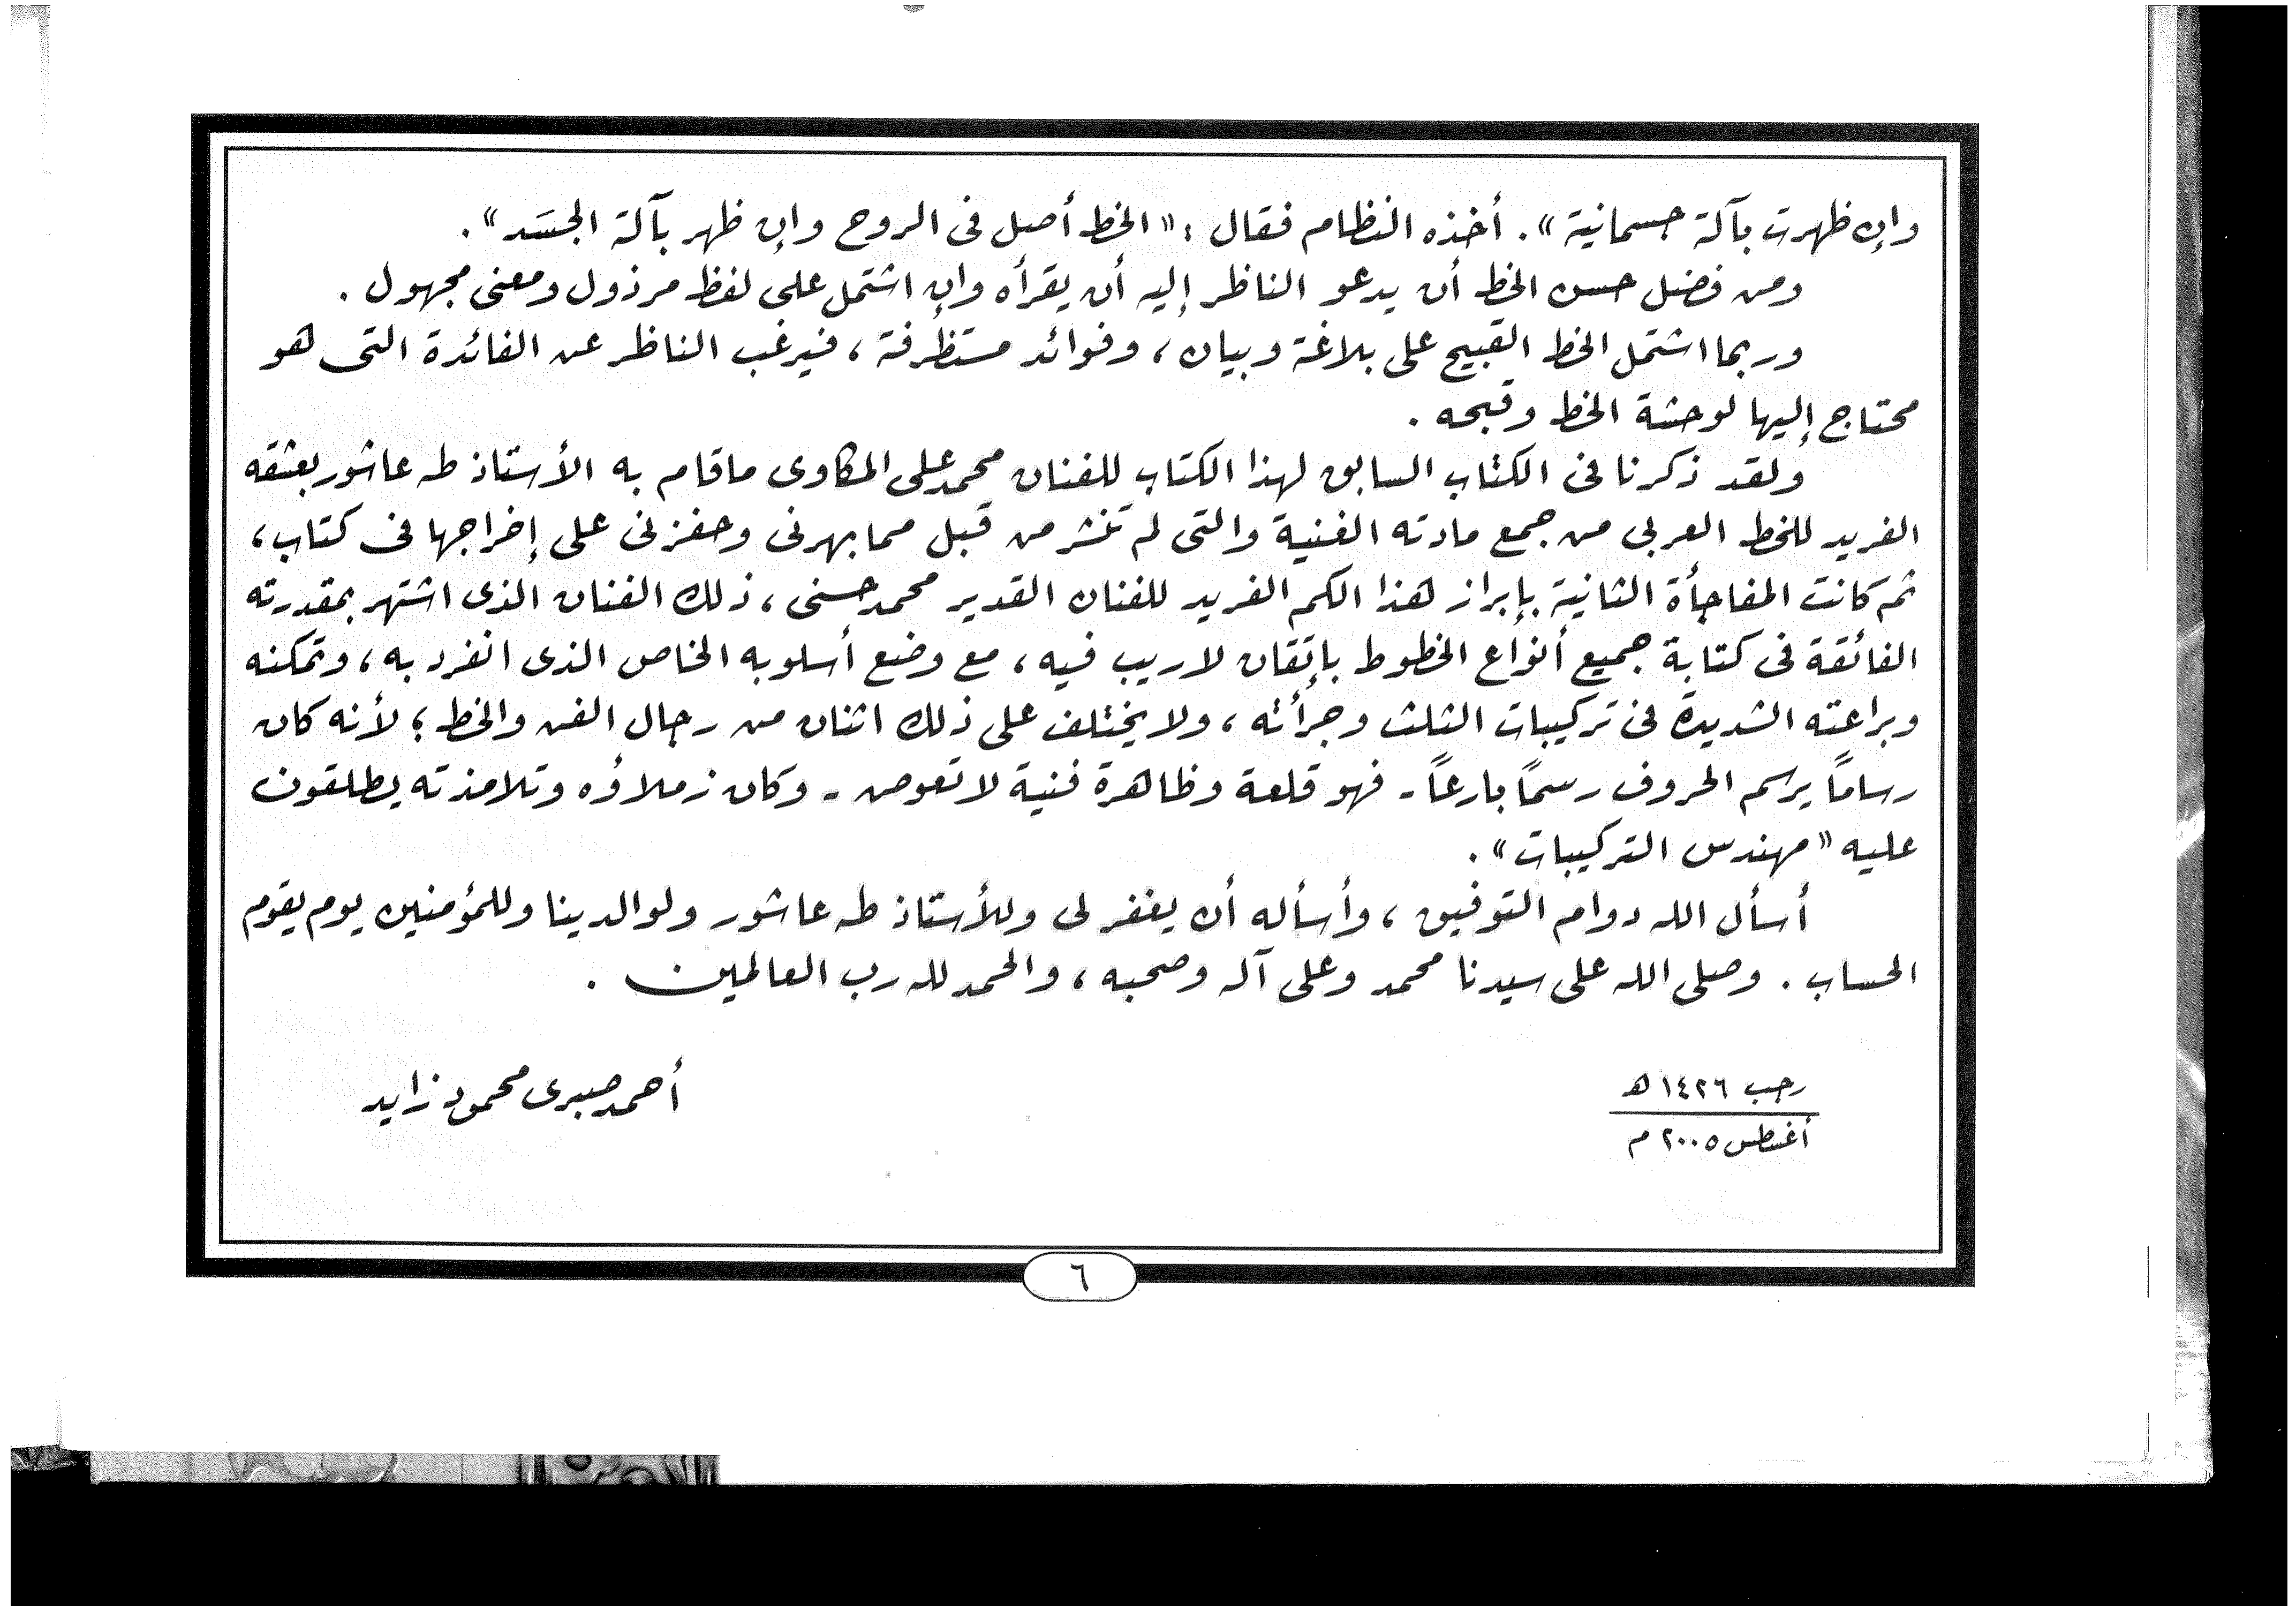 وإن ظهرت بآلة جسمانية». أخذه النظام فقال: «الخط أصل فى الروح وإن ظهر بآلة الجسَد».
ومن فضل حسن الخط أن يدعو الناظر إليه أن يقرأه وإن اشتمل على لفظ مرذول ومعنى مجهول.
وربما اشتمل الخط القبيح على بلاغة وبيان، وفوائد مستظرفة، فيرغب الناظر عن الفائدة التى هو
محتاج إليها لوحشة الخط وقبحه.
ولقد ذكرنا فى الكتاب السابق لهذا الكتاب للفنان محمد على المكاوى ماقام به الأستاذ طه عاشور بعشقه
الفريد للخط العربى من جمع مادته الفنية والتى لم تنشر من قبل مما بهرنى وحفزنى على إخراجها فى كتاب،
ثم كانت المفاجأة الثانية بإبراز هذا الكم الفريد للفنان القدير محمد حسنى، ذلك الفنان الذى اشتهر بمقدرته
الفائقة فى كتابة جميع أنواع الخطوط بإتقان لاريب فيه، مع وضع أسلوبه الخاص الذى انفرد به، وتمكنه
وبراعته الشديدة فى تركيبات الثلث وجرأته، ولا يختلف على ذلك اثنان من رجال الفن والخط؛ لأنه كان
رساماً يرسم الحروف رسمًا بارعاً - فهو قلعة وظاهرة فنية لا تعوض - وكان زملاؤه وتلامذته يطلقون
عليه «مهندس التركيبات».
أسأل الله دوام التوفيق، وأسأله أن يغفر لى وللأستاذ طه عاشور ولوالدينا وللمؤمنين يوم يقوم
الحساب. وصلى الله على سيدنا محمد وعلى آله وصحبه، والحمد لله رب العالمين.
رجب ١٤٢٦ هـ
أغسطس ٢٠٠٥ م
أحمد صبرى محمود زايد
٦